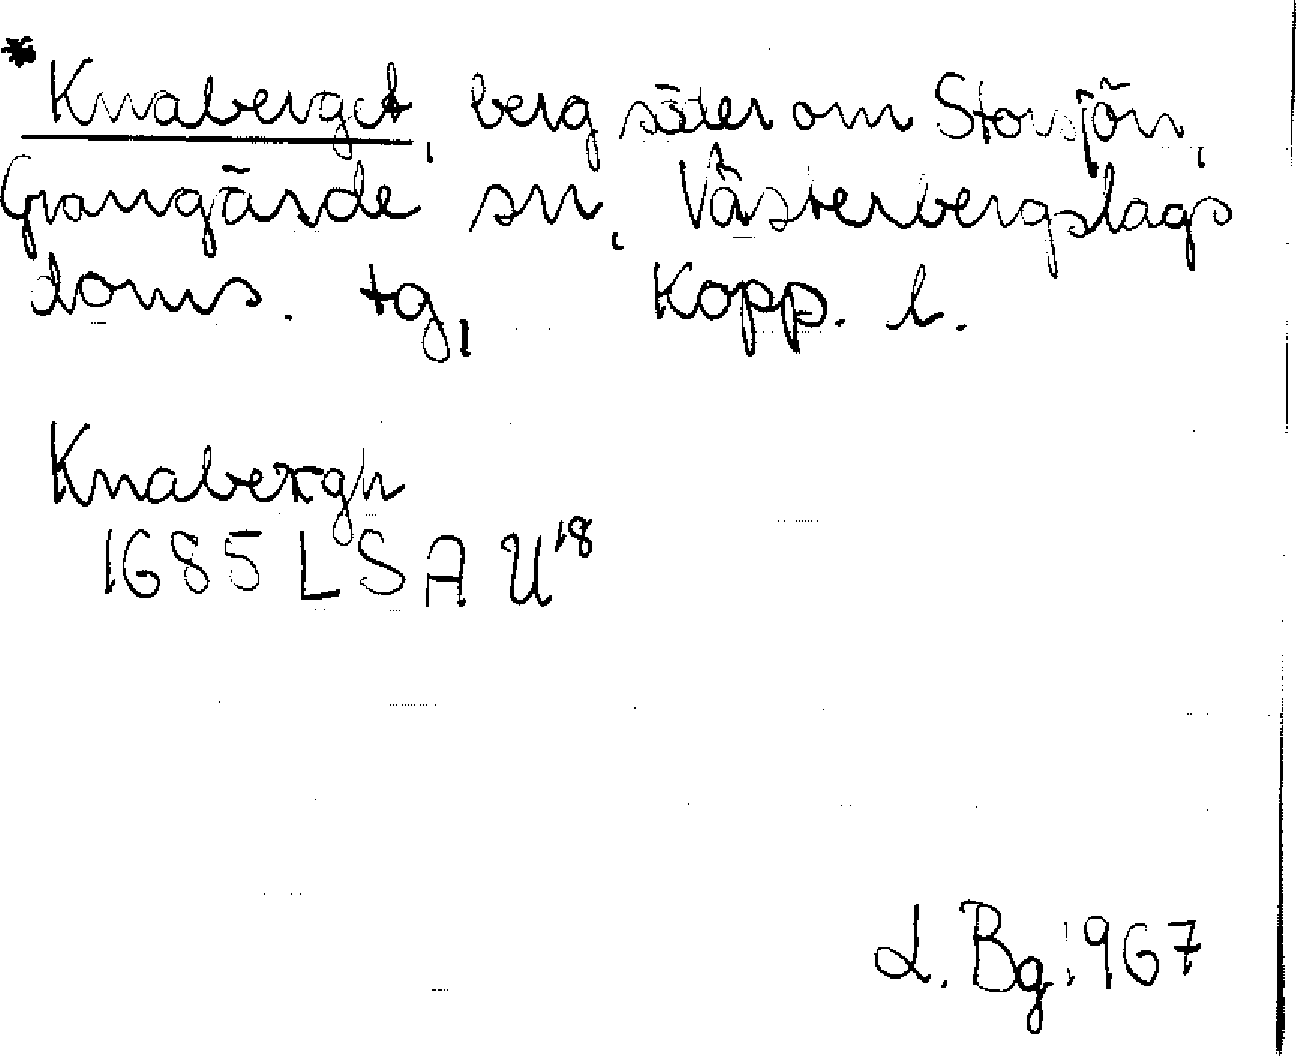 *Knaberget, berg söder om Storsjön,
Grangärde sn, Västerbergslags
doms. tg, Kopp. l.
Knabergh
1685 LSA U18
L. Bg. 1967